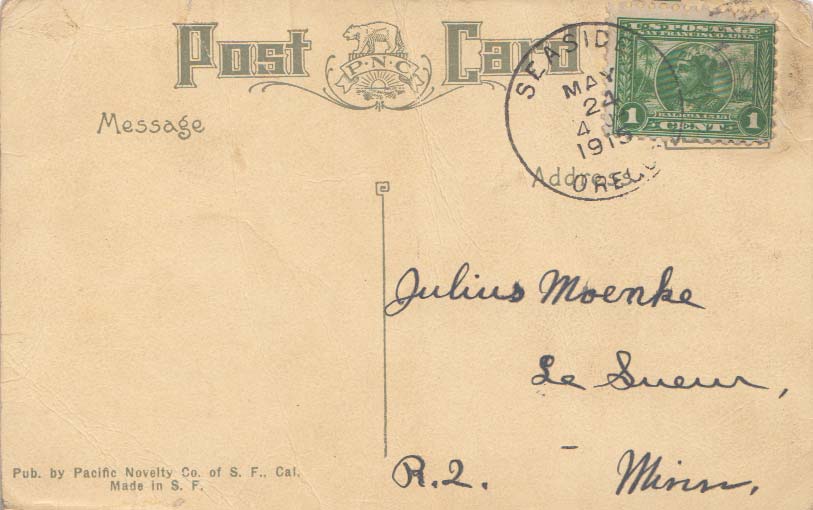 Post Card
P·N·C
SEASIDE
MAY
24
4
1915
OREG
U.S. POSTAGE
SAN FRANCISCO, 1915
BALBOA 1513
1 CENT 1
Message
Address
Julius Moenke
Le Sueur,
R.2. – Minn.
Pub. by Pacific Novelty Co. of S. F., Cal.
Made in S. F.